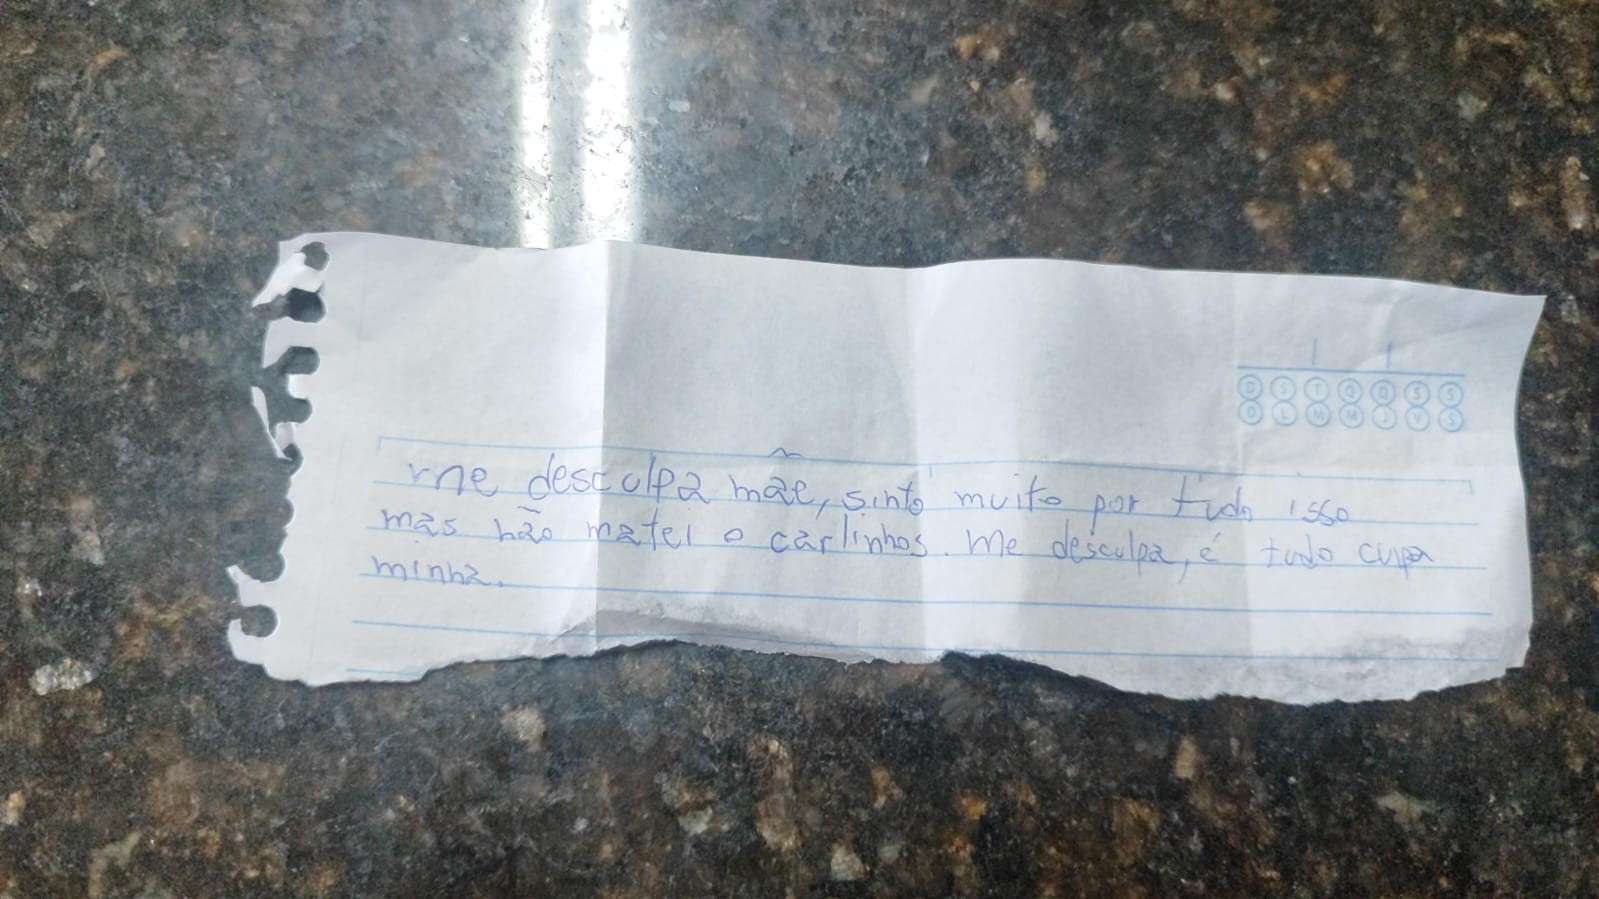 D S T Q Q S S
D L M M J V S
me desculpa mãe, sinto muito por tudo isso
mas não matei o carlinhos. Me desculpa, é tudo culpa
minha.